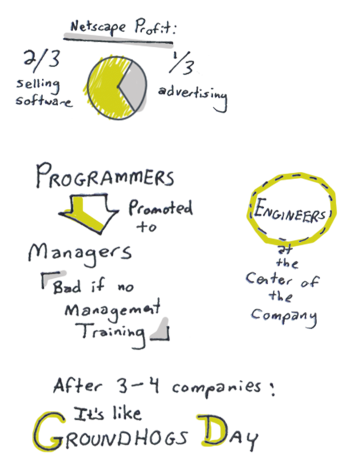 Netscape Profit:
2/3
selling
software
1/3
advertising
PROGRAMMERS
Promoted
to
Managers
Bad if no
Management
Training
ENGINEERS
at
the
Center of
the
Company
After 3-4 companies:
It's like
GROUNDHOGS DAY